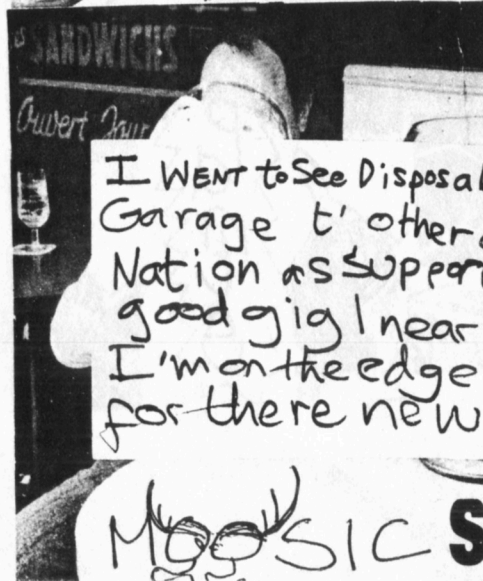 SANDWICHS
Ouvert Jour
I WENT to See Disposal
Garage t' other
Nation as support
good gig I near
I'm on the edge
for there new
MOOSIC S